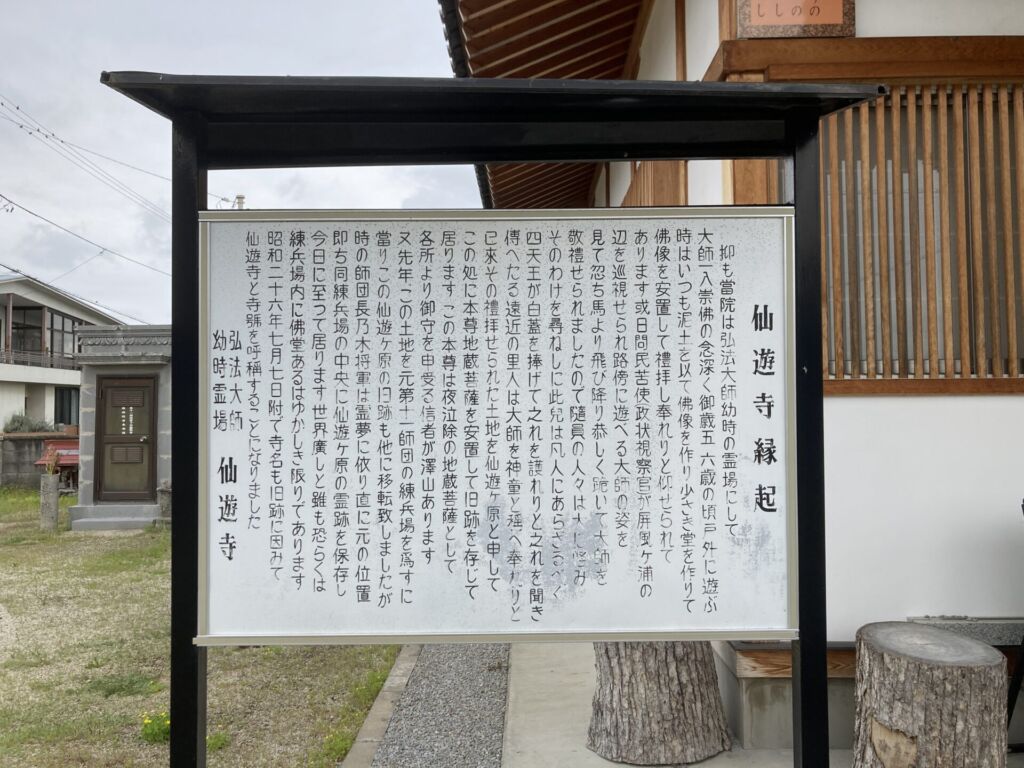 仙遊寺縁起
抑も當院は弘法大師幼時の霊場にして
大師二八崇佛の念深く御歳五六歳の頃戸外に遊ぶ
時はいつも泥土を以て佛像を作り少さき堂を作りて
佛像を安置して禮拝し奉れりと仰せられて
あります或日問民苦使政状視察官が屏風ヶ浦の
辺を巡視せられ路傍に遊べる大師の姿を
見て忽ち馬より飛び降り恭しく跪いて大師を
敬禮せられましたので隨員の人々は大に怪み
そのわけを尋ねしに此兒は凡人にあらざるべく
四天王が白蓋を捧げて之れを護れりと之れを聞き
傳へたる遠近の里人は大師を神童と稱へ奉れりと
已來その禮拝せられた土地を仙遊ヶ原と申して
この処に本尊地蔵菩薩を安置して旧跡を存じて
居ります この本尊は夜泣除の地蔵菩薩として
各所より御守を申受る信者が澤山あります
又先年この土地を元第十一師団の練兵場を爲すに
當りこの仙遊ヶ原の旧跡も他に移転致しましたが
時の師団長乃木将軍は霊夢に依り直に元の位置
即ち同練兵場の中央に仙遊ヶ原の霊跡を保存し
今日に至つて居ります 世界廣しと雖も恐らくは
練兵場内に佛堂あるはゆかしき限りであります
昭和二十六年七月七日附て寺名も旧跡に因みて
仙遊寺と寺號を呼稱することになりました
弘法大師
幼時霊場
仙遊寺